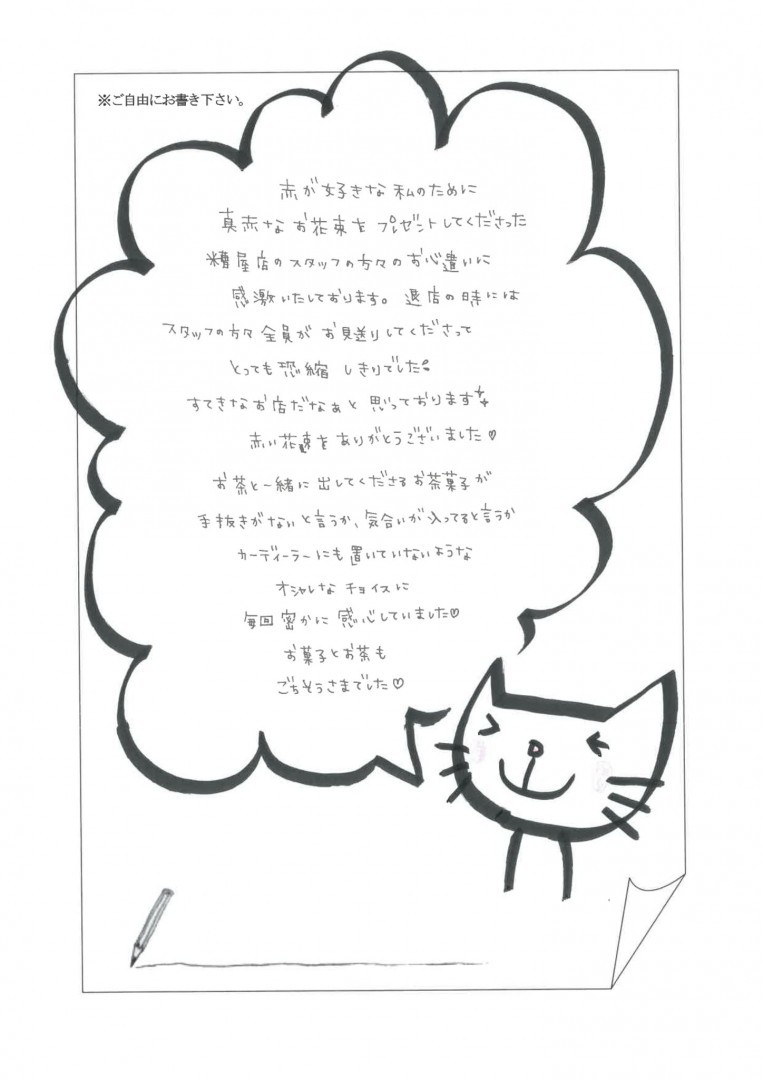 ※ご自由にお書き下さい。
赤が好きな私のために
真赤なお花束をプレゼントしてくださった
糟屋店のスタッフの方々のお心遣いに
感激いたしております。退店の時には
スタッフの方々全員がお見送りしてくださって
とっても恐縮しきりでした
すてきなお店だなぁと思っております
赤い花束をありがとうございました♡
お茶と一緒に出してくださるお茶菓子が
手抜きがないと言うか、気合いが入ってると言うか
カーディーラーにも置いていないような
オシャレなチョイスに
毎回密かに感心していました♡
お菓子とお茶も
ごちそうさまでした♡